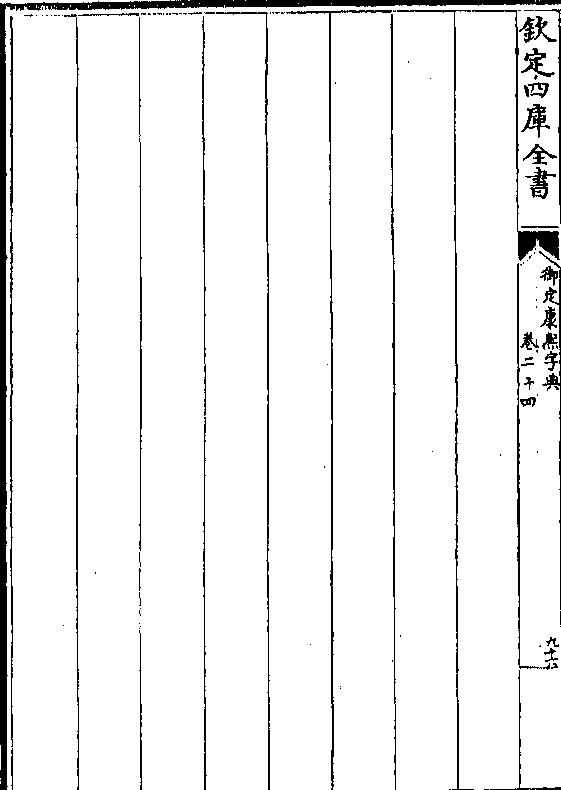 欽定四庫全書
御定康熙字典
卷二十四
九十